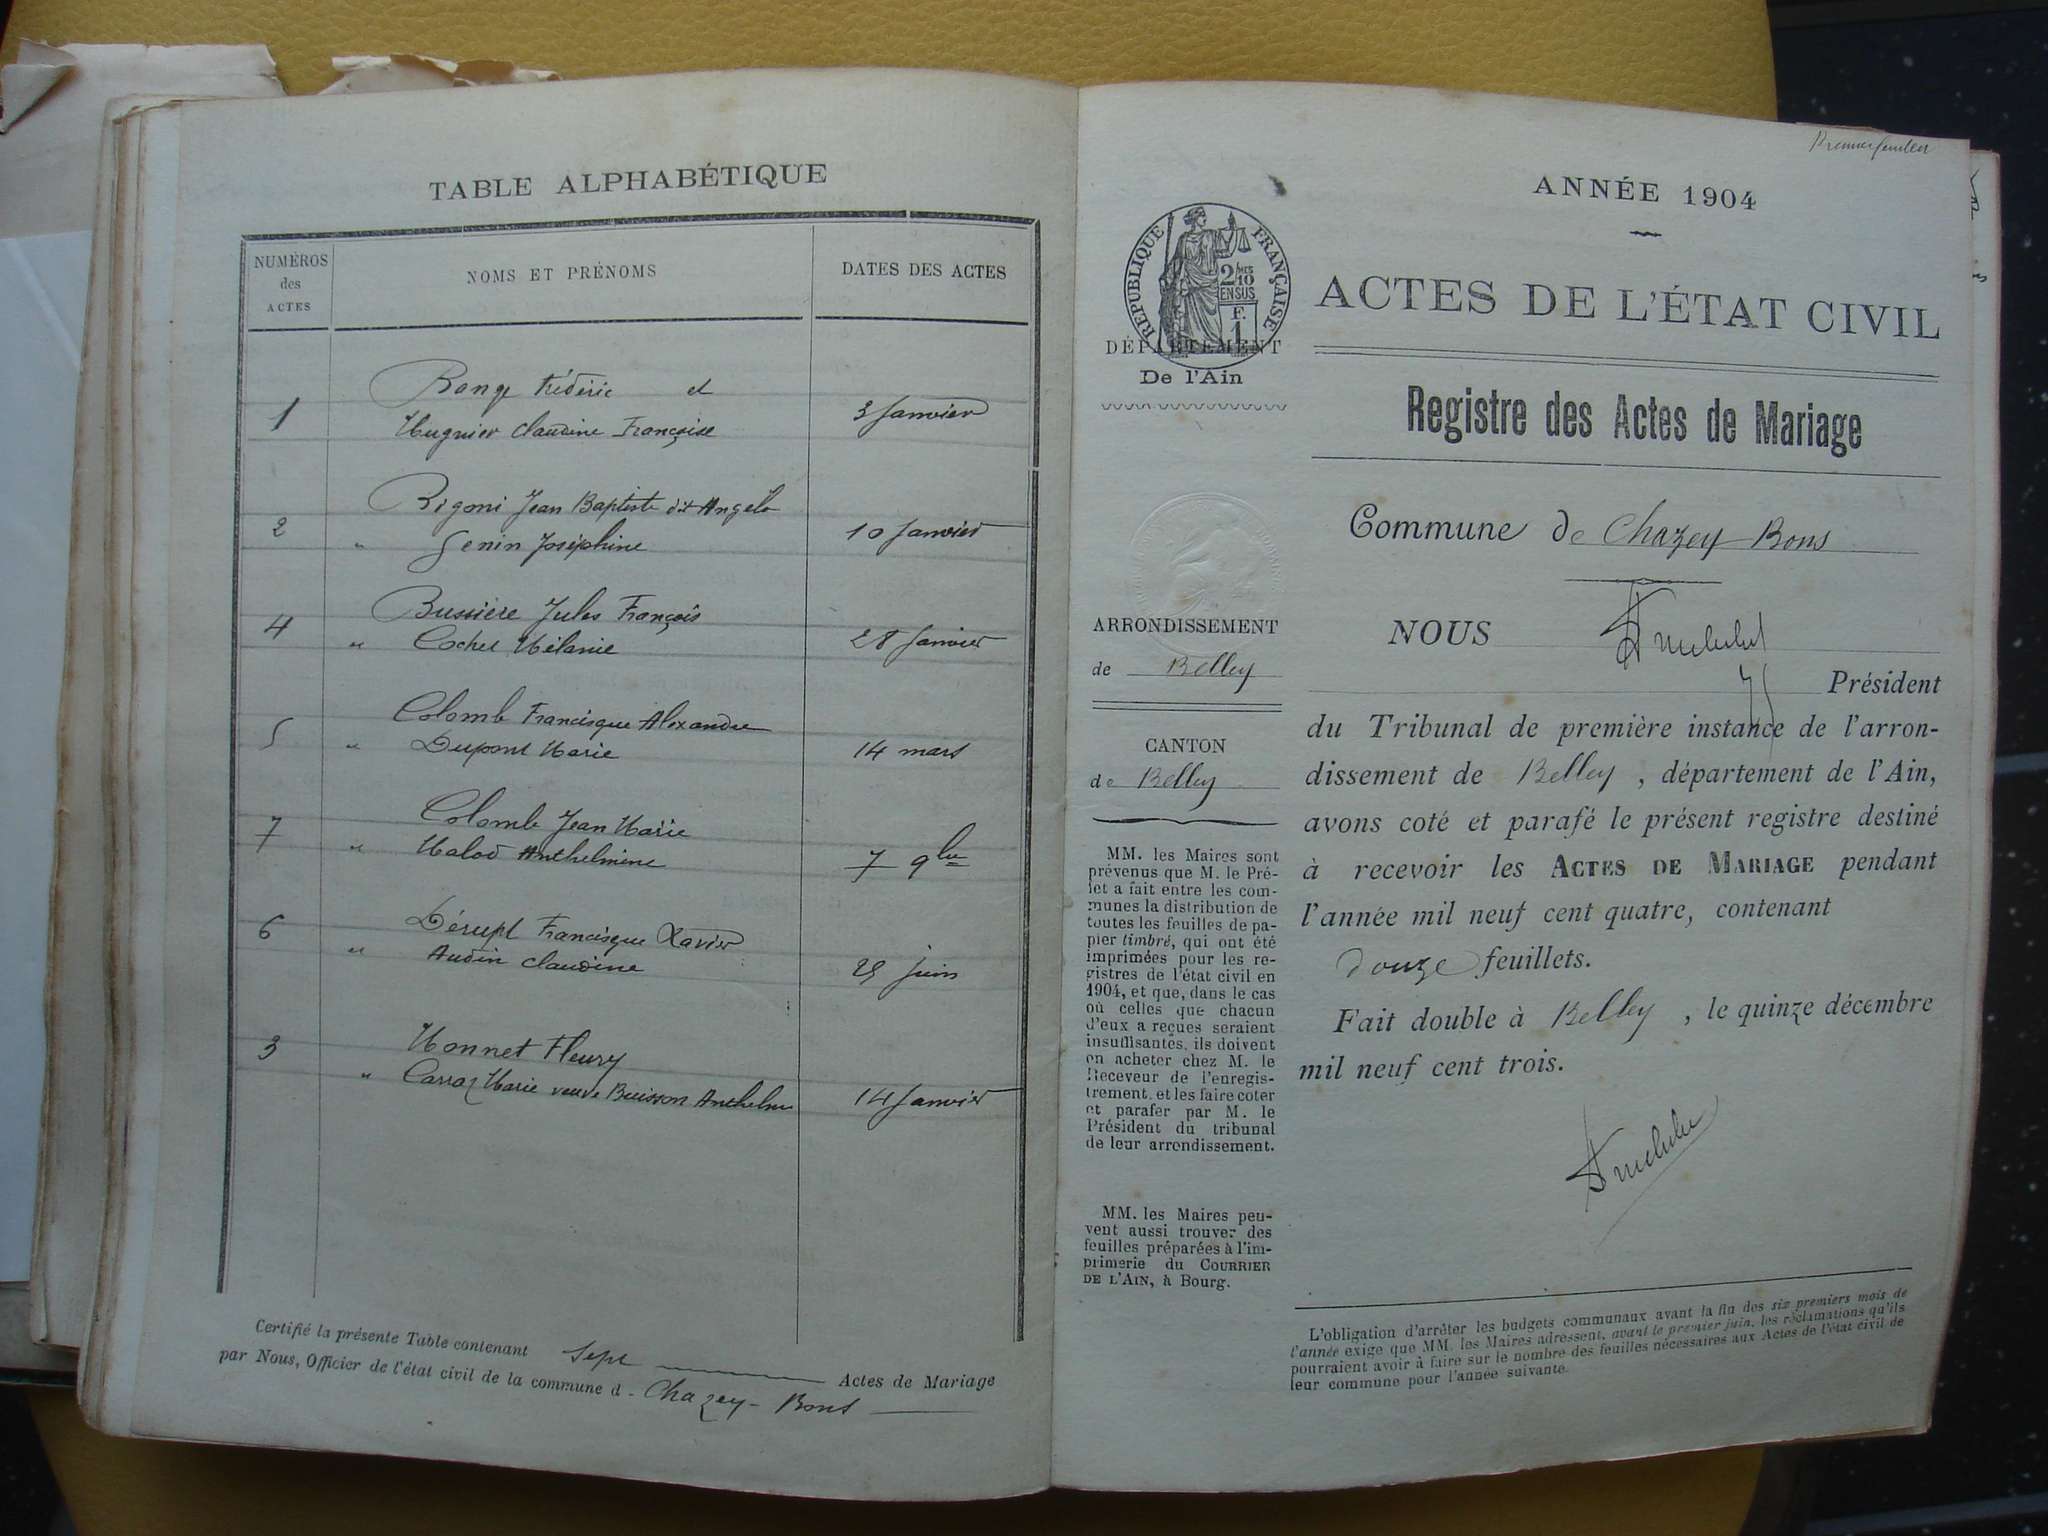 TABLE ALPHABÉTIQUE
NUMÉROS
des
ACTES
NOMS ET PRÉNOMS
DATES DES ACTES
et
1
Huguier Claudine Françoise
3 Janvier
Rigoni Jean Baptiste dit Angelo
2
" Genin Joséphine
10 Janvier
Bussière Jules François
4
" Cochet Mélanie
28 Janvier
Colomb Francisque Alexandre
5
" Dupont Marie
14 mars
Colomb Jean Marie
7
" Anthelmine
7 9bre
6
Francisque Xavier
" Audin Claudine
25 juin
3
Monnet Fleury
" Carraz Marie veuve Buisson Anthelme
14 Janvier
Certifié la présente Table contenant Sept Actes de Mariage
par Nous, Officier de l'état civil de la commune d - Chazey-Bons
Premier feuillet
ANNÉE 1904
ACTES DE L'ÉTAT CIVIL
RÉPUBLIQUE FRANÇAISE
2/10
EN SUS
F.
1
DÉPARTEMENT
De l'Ain
Registre des Actes de Mariage
Commune de Chazey-Bons
ARRONDISSEMENT
de Belley
CANTON
de Belley
MM. les Maires sont
prévenus que M. le Pré-
fet a fait entre les com-
munes la distribution de
toutes les feuilles de pa-
pier timbré, qui ont été
imprimées pour les re-
gistres de l'état civil en
1904, et que, dans le cas
où celles que chacun
d'eux a reçues seraient
insuffisantes, ils doivent
en acheter chez M. le
Receveur de l'enregis-
trement, et les faire coter
et parafer par M. le
Président du tribunal
de leur arrondissement.
MM. les Maires peu-
vent aussi trouver des
feuilles préparées à l'im-
primerie du COURRIER
DE L'AIN, à Bourg.
NOUS
Président
du Tribunal de première instance de l'arron-
dissement de Belley, département de l'Ain,
avons coté et parafé le présent registre destiné
à recevoir les ACTES DE MARIAGE pendant
l'année mil neuf cent quatre, contenant
douze feuillets.
Fait double à Belley, le quinze décembre
mil neuf cent trois.
L'obligation d'arrêter les budgets communaux avant la fin des six premiers mois de
l'année exige que MM. les Maires adressent, avant le premier juin, les réclamations qu'ils
pourraient avoir à faire sur le nombre des feuilles nécessaires aux Actes de l'état civil de
leur commune pour l'année suivante.